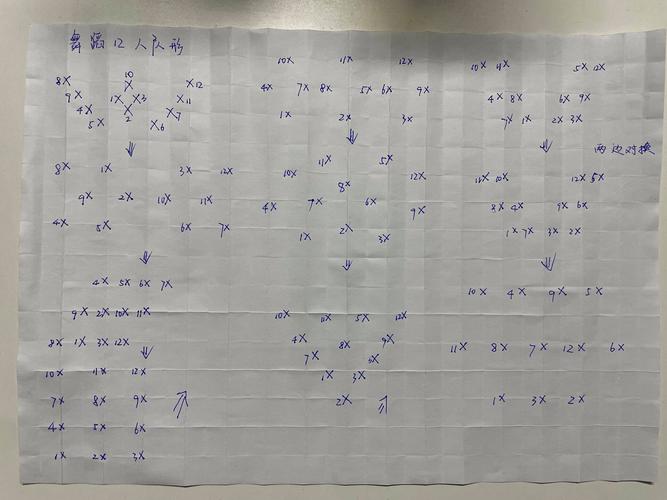 舞蹈12人队形
10
8X X X12
9X 1X X3 X11
4X X X7
5X 2 X6
⇓
8X 1X 3X 12X
9X 2X 10X 11X
4X 5X 6X 7X
⇓
4X 5X 6X 7X
9X 2X 10X 11X
8X 1X 3X 12X
⇓
10X 11X 12X
7X 8X 9X
4X 5X 6X
1X 2X 3X
10X 11X 12X
4X 7X 8X 5X 6X 9X
1X 2X 3X
⇓
11X 5X
10X 8X 12X
4X 7X 6X 9X
1X 2X 3X
⇓
10X 11X 5X 12X
4X 8X 9X
7X
1X 3X
2X
10X 11X 5X 12X
4X 8X 6X 9X
7X 1X 2X 3X
⇓ 两边对换
11X 10X 12X 5X
8X 4X 9X 6X
1X 7X 3X 2X
⇓
10X 4X 9X 5X
11X 8X 7X 12X 6X
1X 3X 2X